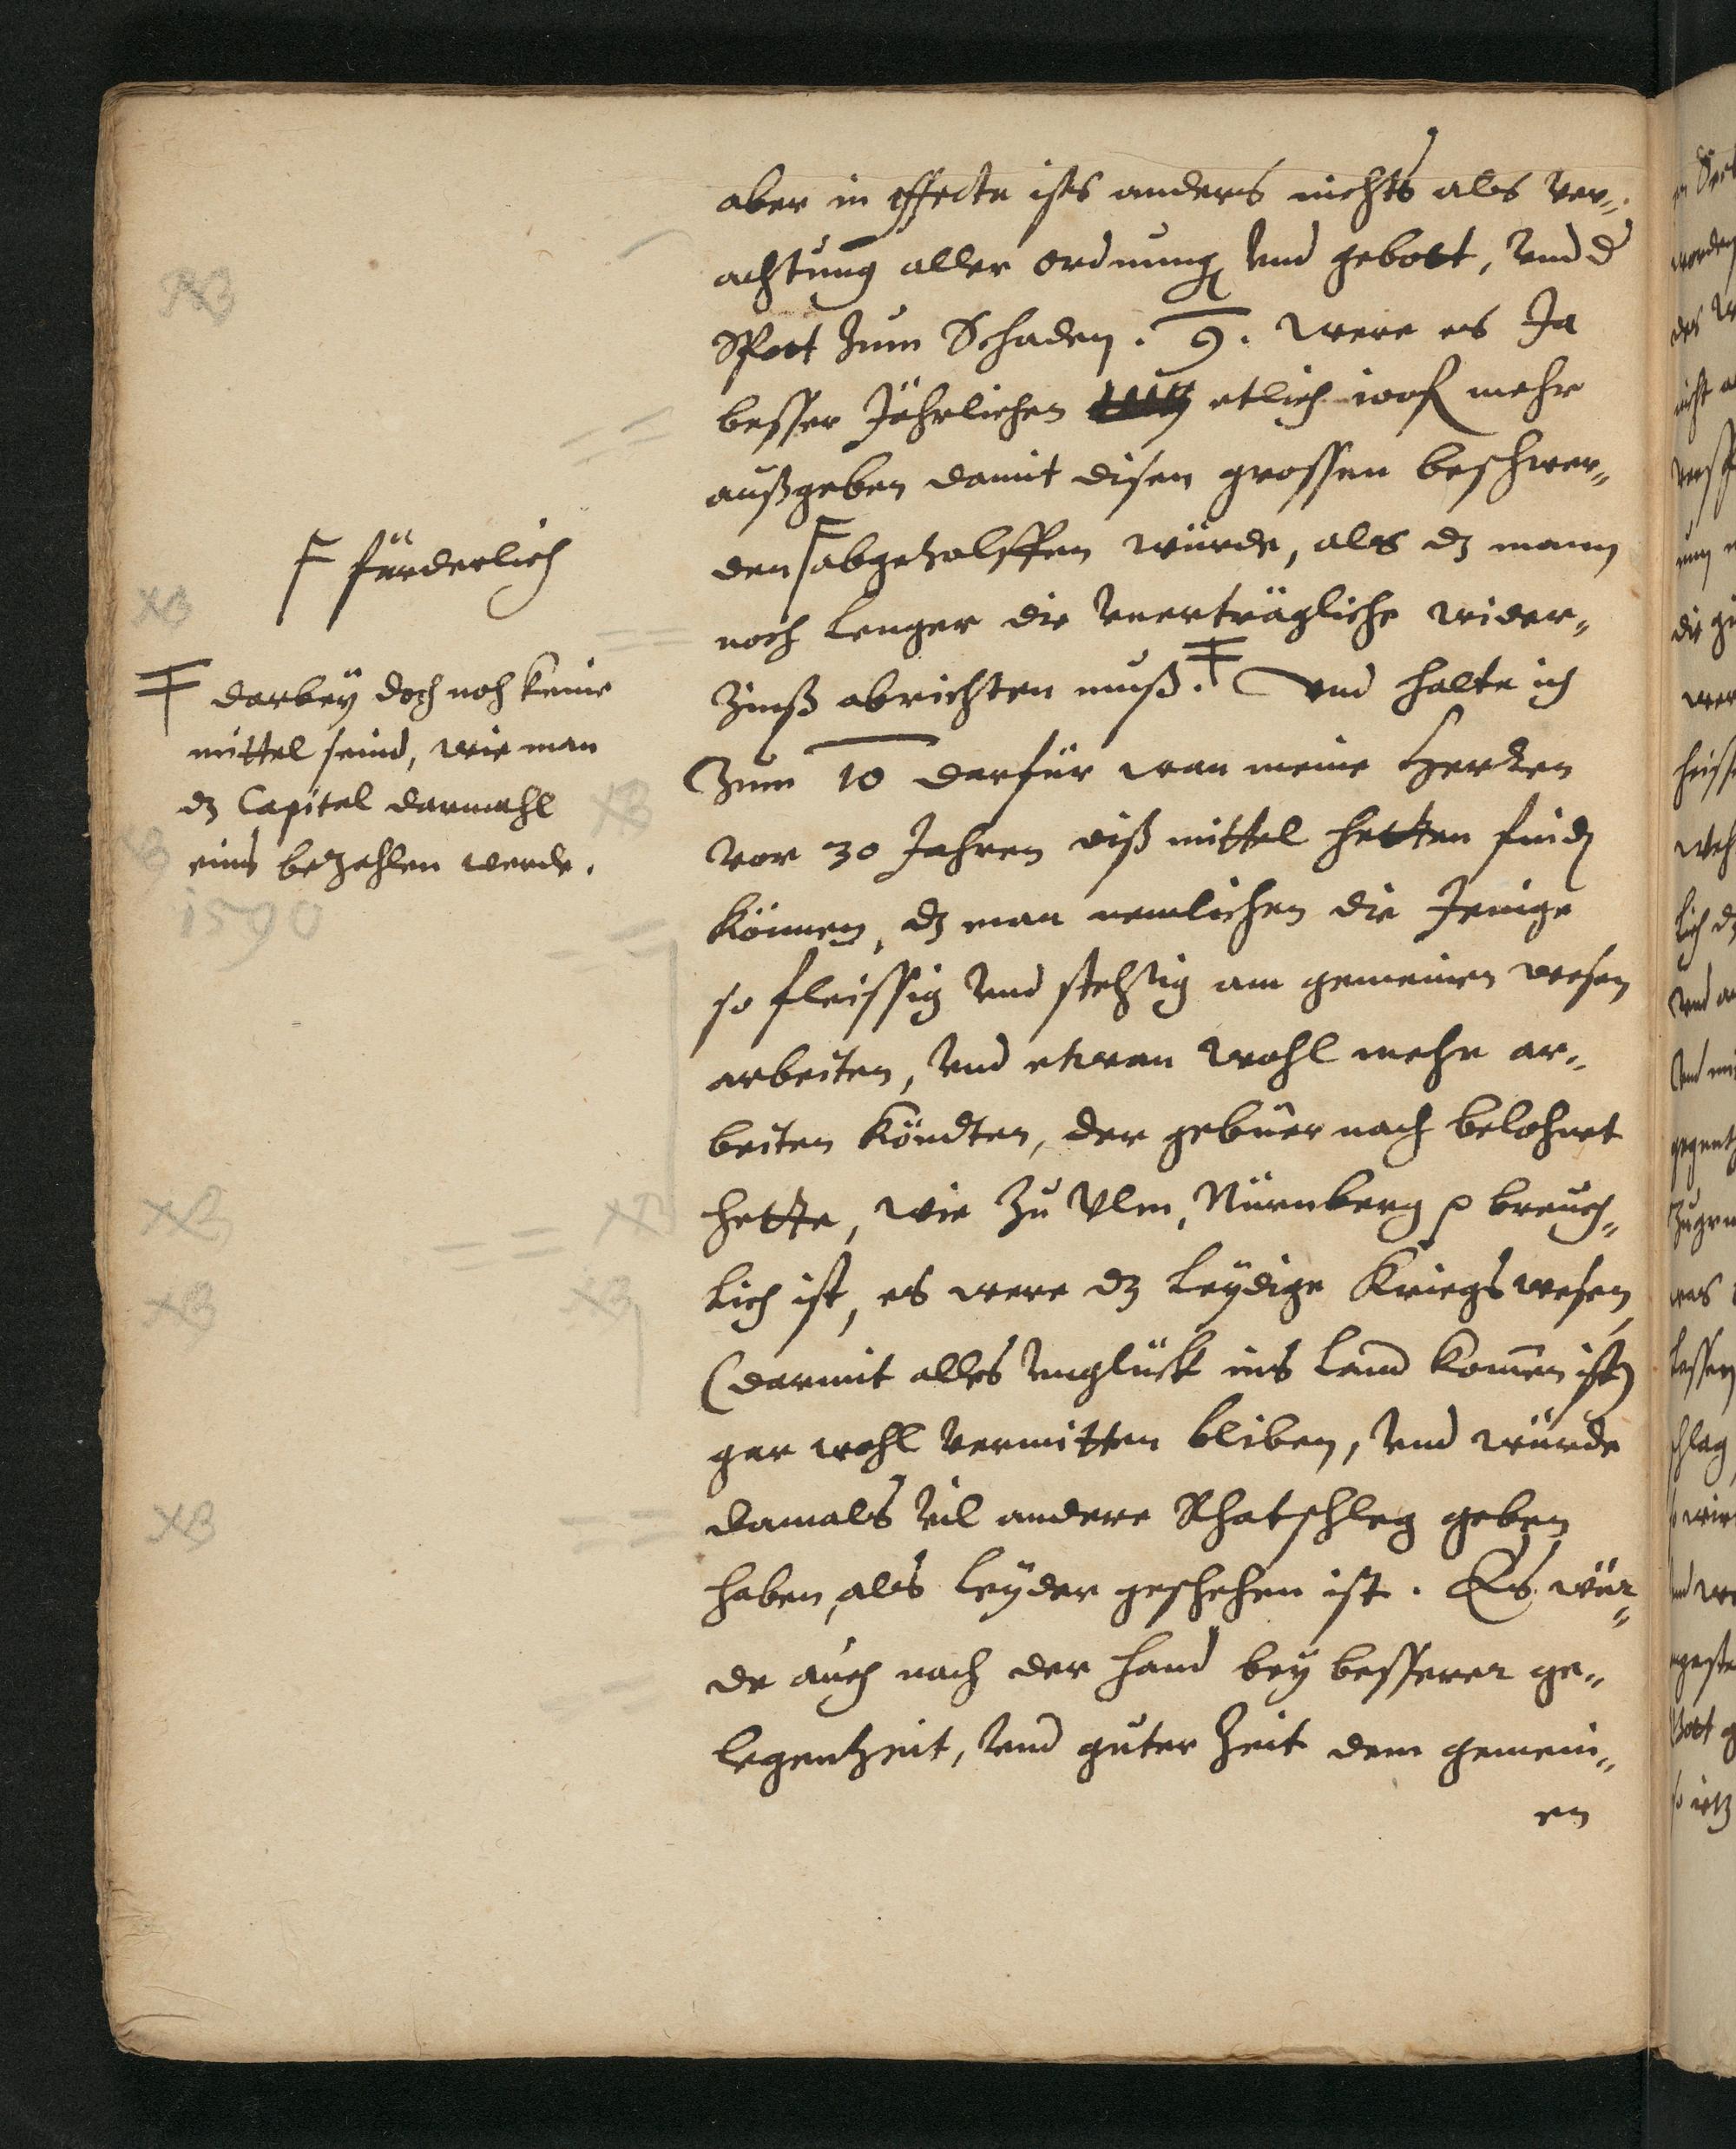 aber in effecte ists anders nichts als ver„
achtung aller ordnung vnd gebott, vnd d
Spott zum Schaden. 9. were es Ja
besser Jährlichen etlich 100 f mehr
außgeben damit disen grossen beschwer„
den F abgeholffen würde, als dz mann
noch lenger die vnerträgliche wider„
Zinß abrichten muß. Ŧ vnd halte ich
Zum 10 darfür wan meine Herren
vor 30 Jahren diß mittel hetten find
können, dz man nemlichen die Jenige
so fleissig vnd stehtig am gemeinen wesen
arbeiten, vnd etwan wohl mehr ar„
beiten köndten, der gebüer nach belohnet
hette, wie zu Vlm, Nürnberg p breuch„
lich ist, es were dz leydige Kriegswesen
(darmit alles vnglückh ins land komen ist)
gar wohl vermitten bliben, vnd würde
damals vil andere Rhatschleg geben
haben, als leyder geschehen ist. Es wür„
de auch nach der hand bey besserer ge„
legenheit, vnd guter Zeit dem gemein„
en
F fürderlich
Ŧ darbey doch noch keine
mittel seind, wie man
dz Capital darmahl
eins bezahlen werde.
1590
NB
NB
NB
NB
NB
NB
NB
NB
NB